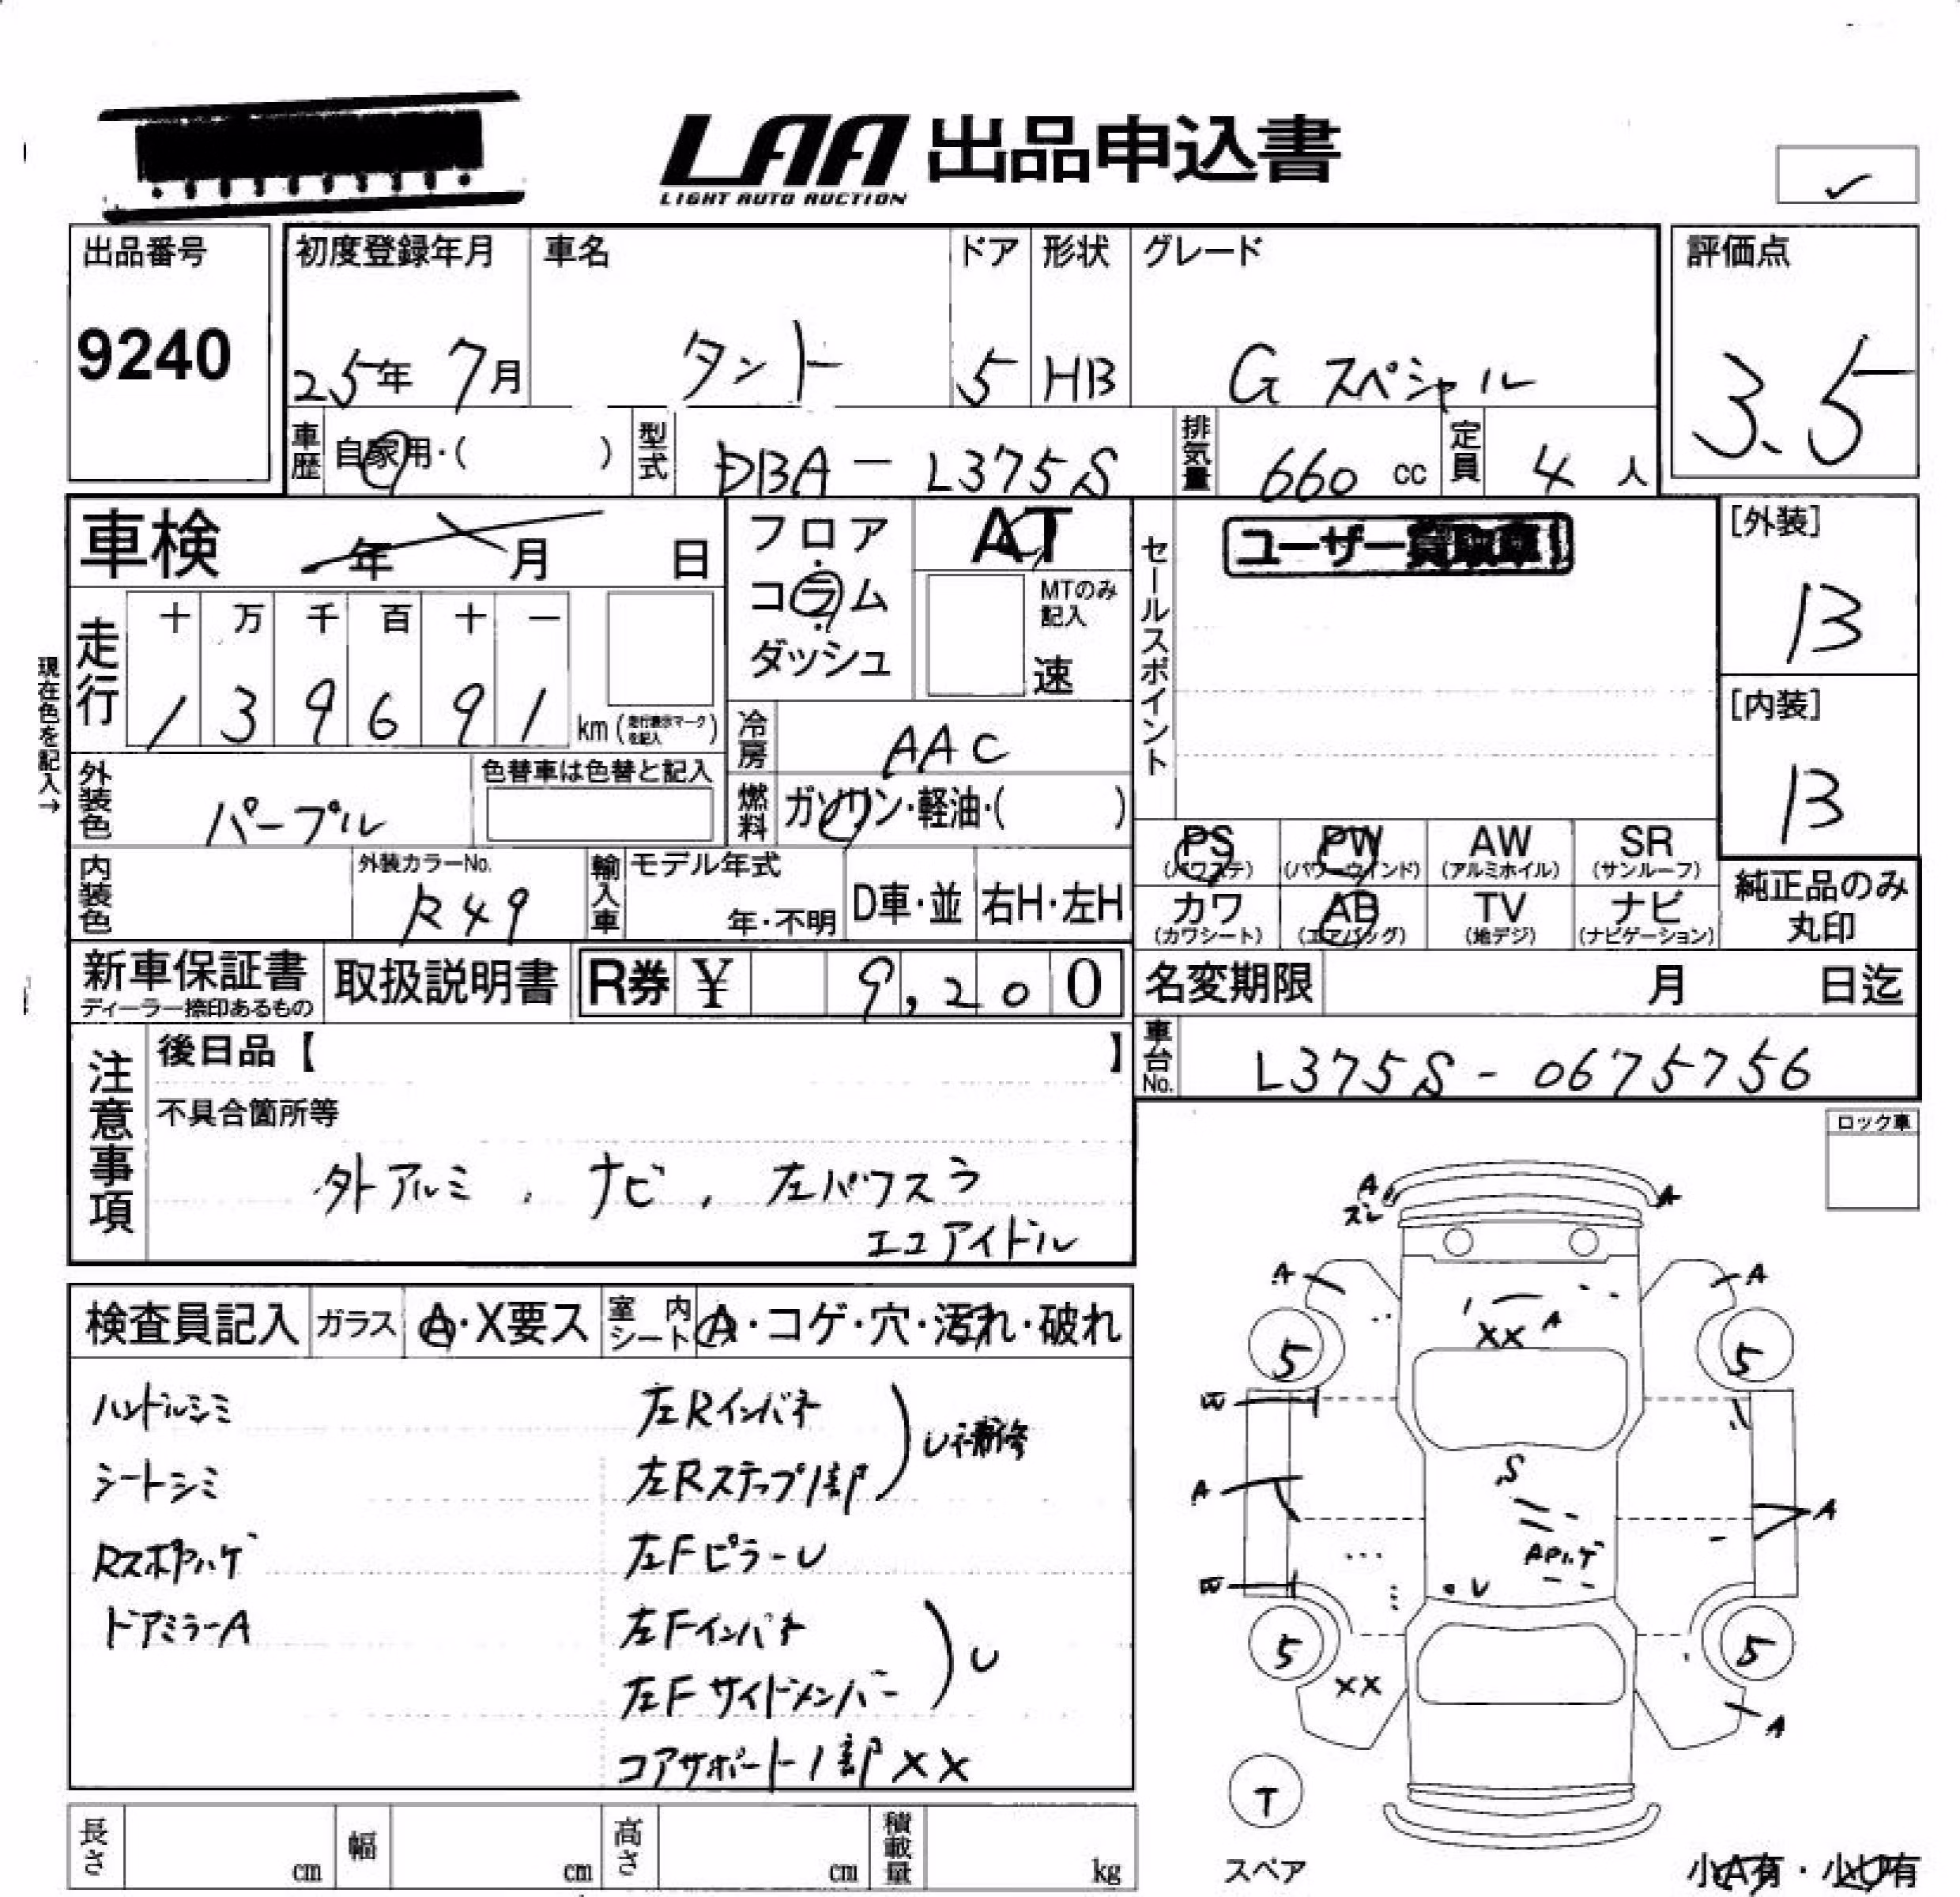 LAA 出品申込書
LIGHT AUTO AUCTION
出品番号
9240
初度登録年月
25年 7月
車名
タント
ドア
5
形状
HB
グレード
G スペシャル
評価点
3.5
車歴
自家用・( )
型式
DBA - L375S
排気量
660 cc
定員
4 人
車検
年 月 日
フロア
コラム
ダッシュ
AT
MTのみ
記入
速
セールスポイント
ユーザー買取車!
[外装]
B
[内装]
B
現在色を記入→
走行
十 万 千 百 十 一
1 3 9 6 9 1
km (走行表示マークを記入)
冷房
AAC
外装色
パープル
色替車は色替と記入
燃料
ガソリン・軽油・( )
PS
(パワステ)
PW
(パワーウインド)
AW
(アルミホイル)
SR
(サンルーフ)
カワ
(カワシート)
AB
(エアバッグ)
TV
(地デジ)
ナビ
(ナビゲーション)
純正品のみ
丸印
内装色
外装カラーNo.
R49
輸入車
モデル年式
年・不明
D車・並
右H・左H
新車保証書
ディーラー捺印あるもの
取扱説明書
R券 ¥ 9,200
名変期限
月 日迄
車台No.
L375S - 0675756
注意事項
後日品【 】
不具合箇所等
外アルミ、ナビ、左パワスラ
エコアイドル
ロック車
検査員記入
ガラス
A・X要ス
室内
シート
A・コゲ・穴・汚れ・破れ
ハンドルシミ
シートシミ
Rスポイハゲ
ドアミラーA
左Rインパネ
左Rステップ1部
U補修
左Fピラー U
左Fインパネ
左Fサイドメンバー
U
コアサポート1部 XX
A
ズレ
A
A
A
A
XX
5
5
S
A
A
APハゲ
U
5
5
XX
A
T
スペア
長さ
cm
幅
cm
高さ
cm
積載量
kg
小A有・小U有